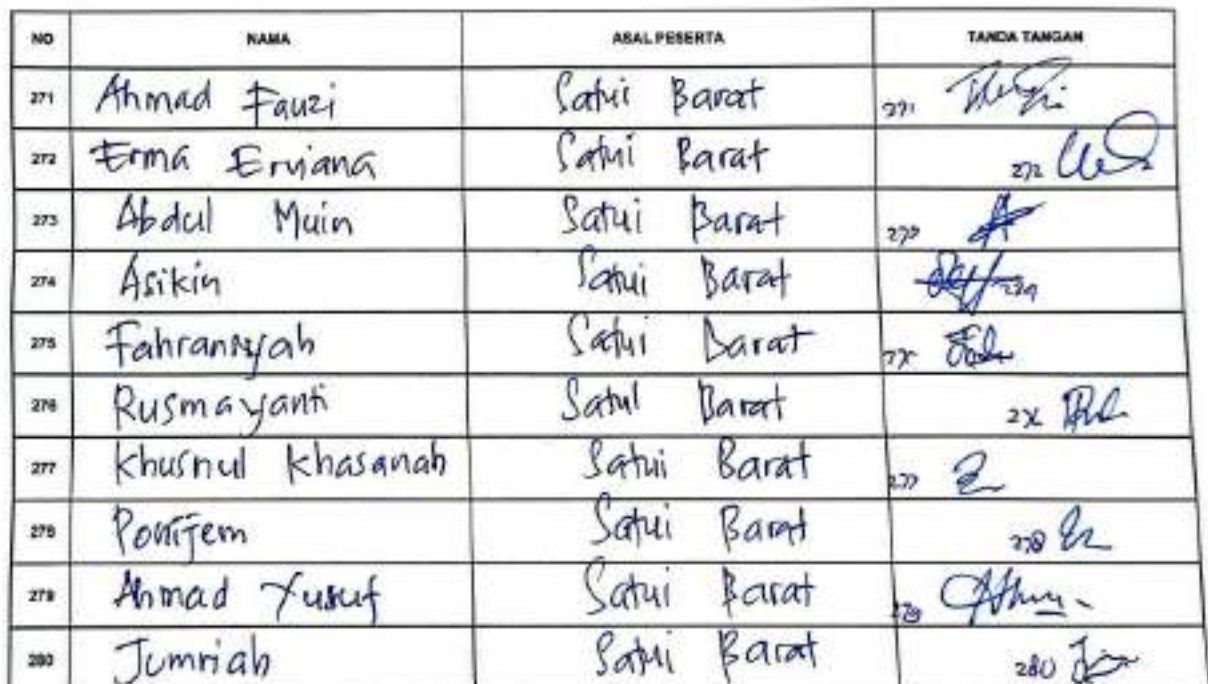 NO NAMA ASAL PESERTA TANDA TANGAN
271 Ahmad Fauzi Satui Barat 271
272 Erma Erviana Satui Barat 272
273 Abdul Muin Satui Barat 273
274 Asikin Satui Barat 274
275 Fahransyah Satui Barat 275
276 Rusmayanti Satui Barat 276
277 Khusnul Khasanah Satui Barat 277
278 Ponijem Satui Barat 278
279 Ahmad Yusuf Satui Barat 279
280 Jumriah Satui Barat 280